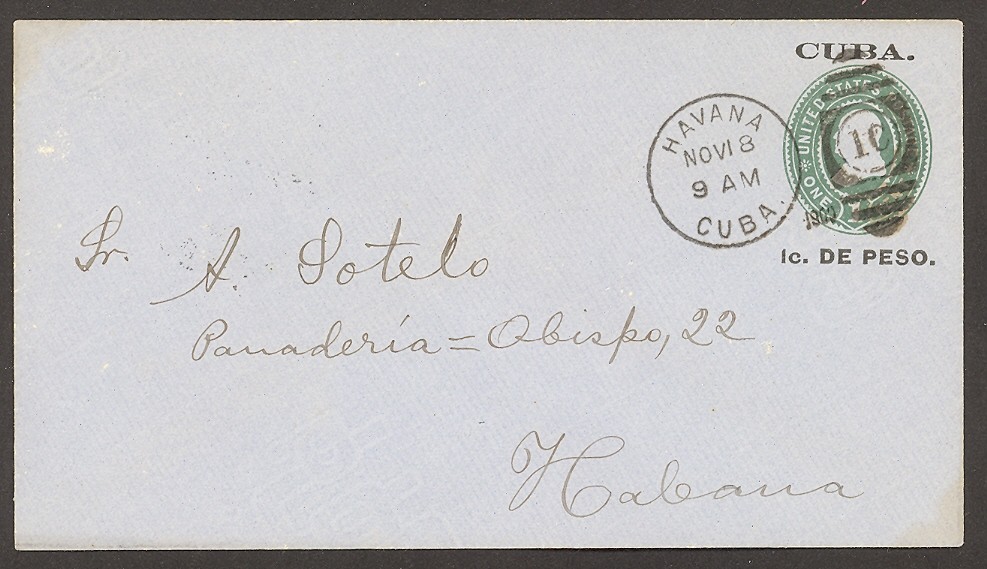 CUBA.
UNITED STATES
ONE
1C
HAVANA
NOV 18
9 AM
CUBA.
1c. DE PESO.
Sr. A. Sotelo
Panadería = Obispo, 22
Habana